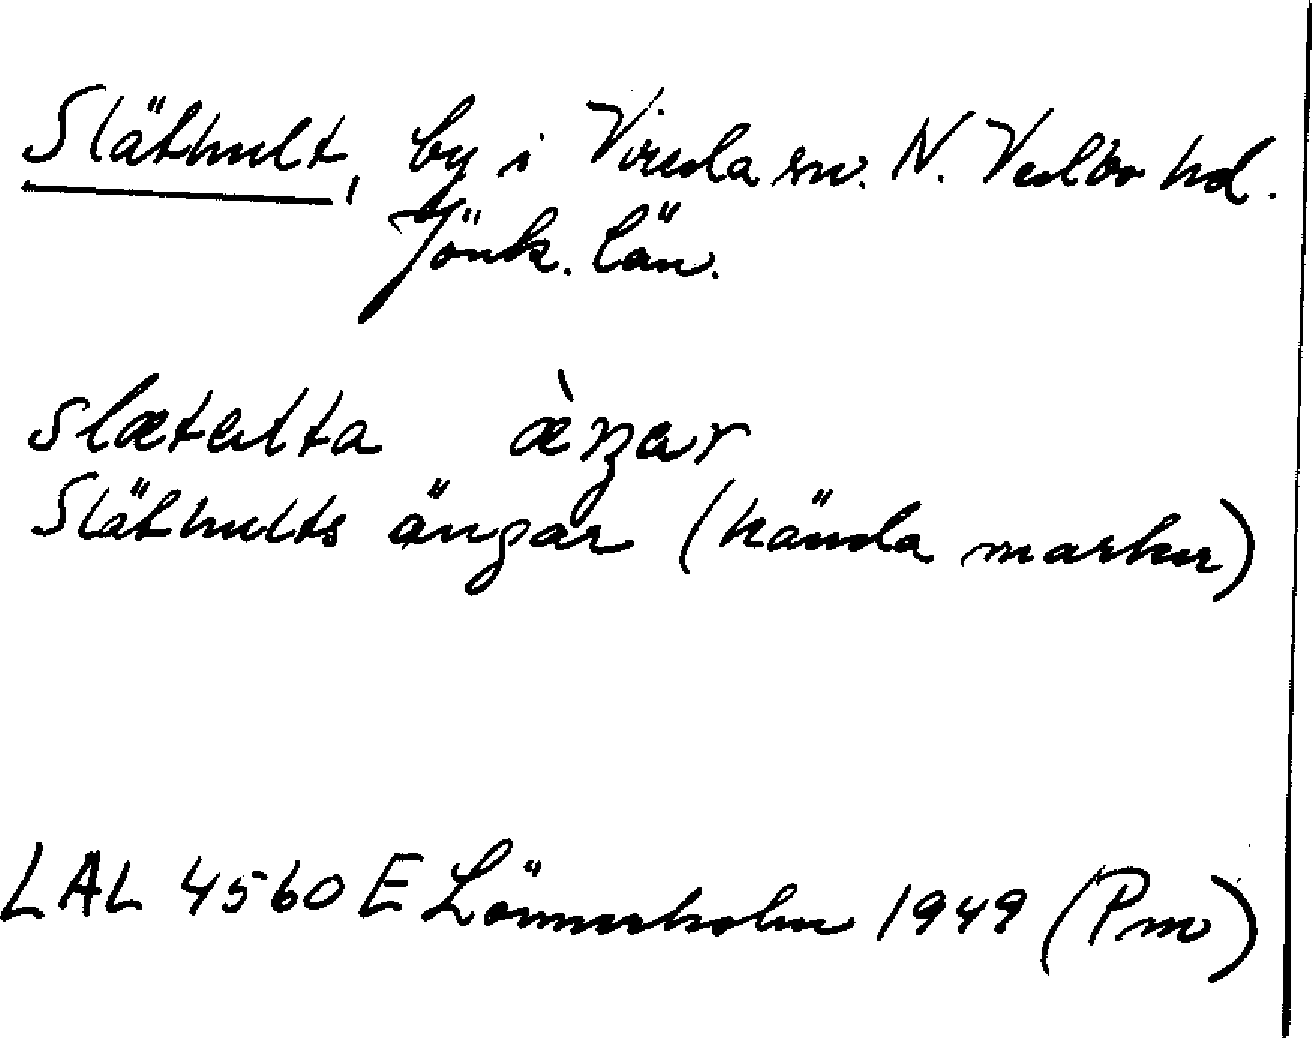 Släthult, by i Vireda sn. N. Vedbo hd.
Jönk. län.
slætulta æ̀ŋar
Släthults ängar (hända marker)
LAL 4560 E Lönnerholm 1949 (Pm)